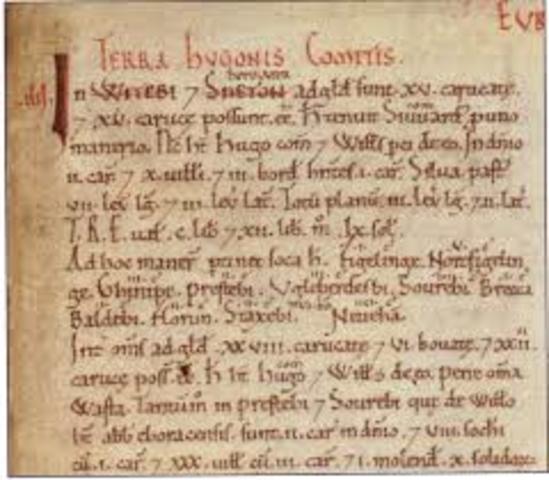 EVR
TERRA HVGONIS COMITIS.
In WITEBI 7 SNETON berewita ad gld̄ sunt .xv. carucatę.
7 .xv. carucę possunt .ēē. H̄ tenuit Siuuard p uno
manerio. Nc̄ ht̄ Hugo com̄ 7 Wills de eo. In dn̄io
.ii. car̄ 7 x. uilli. 7 iii. bord̄ hn̄tes .i. car̄. Silua past̄
vii. leu lḡ. 7 iii. leu lat̄. Totū planū .iii. leu lḡ. 7 ii. lat̄.
T.R.E. ual̄ .c. lib̄ 7 xii. lib̄. m̊ .lx. sol̄.
Ad hoc maner̄ ptinet soca h̄. Figelinge. Nortfigelin
ge. Ghinipe. Prestebi. Ugleberdesbi. Sourebi. Brecca
Baldebi. Florun. Staxebi. Neuehā.
Int̄ om̄s ad gld̄ .xxviii. carucatę 7 vi. bouatę. 7 xxii.
carucę poss̄ .ēē. H̄ ht̄ hugo com̄ 7 Wills de eo. pene om̄a
Wasta. Tantū in prestebi 7 Sourebi que de Willo
ht̄ abb̄ eboracensis. sunt .ii. car̄ in dn̄io. 7 viii. sochi
cū .i. car̄. 7 xxx. uill̄ cū .iii. car̄. 7 i. molend̄. x. solidorū.